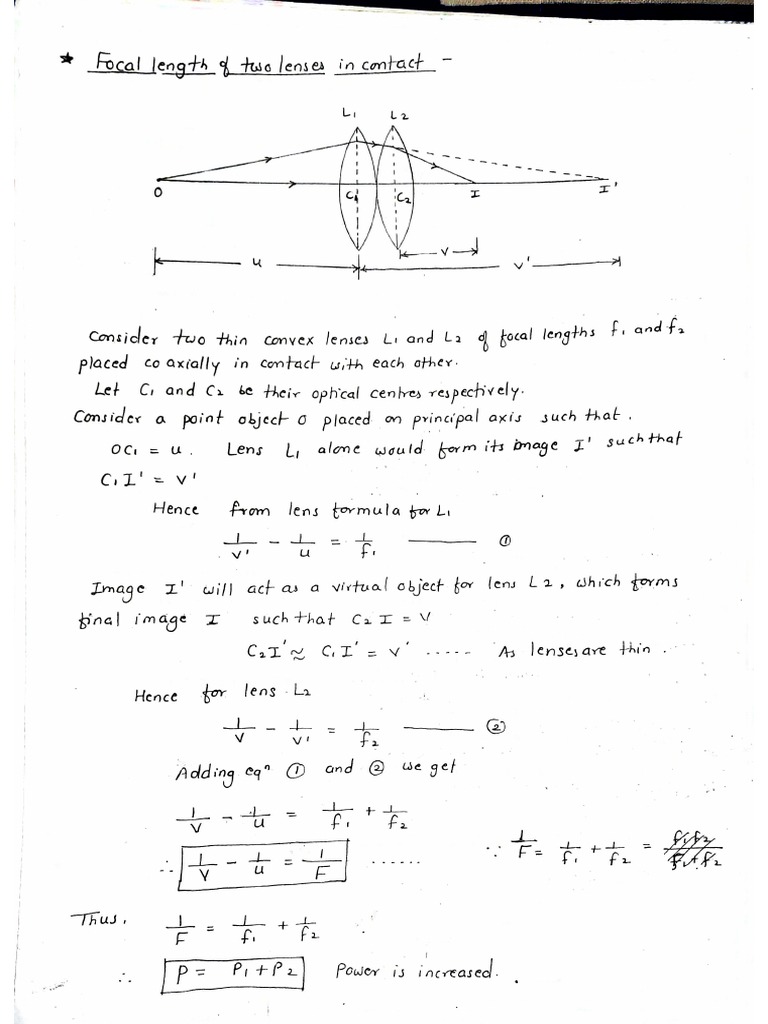 * Focal length of two lenses in contact -
L1 L2
O C1 C2 I I'
u v v'
Consider two thin convex lenses L1 and L2 of focal lengths f1 and f2
placed co axially in contact with each other.
Let C1 and C2 be their optical centres respectively.
Consider a point object O placed on principal axis such that.
OC1 = u. Lens L1 alone would form its image I' such that
C1I' = v'
Hence from lens formula for L1
1/v' - 1/u = 1/f1 ——— ①
Image I' will act as a virtual object for lens L2, which forms
final image I such that C2I = v
C2I' ≈ C1I' = v' ..... As lenses are thin.
Hence for lens L2
1/v - 1/v' = 1/f2 ——— ②
Adding eqn ① and ② we get
1/v - 1/u = 1/f1 + 1/f2
∴ 1/v - 1/u = 1/F ...... ∵ 1/F = 1/f1 + 1/f2 = f1f2/f1+f2
Thus, 1/F = 1/f1 + 1/f2 .
∴ P = P1 + P2 Power is increased.